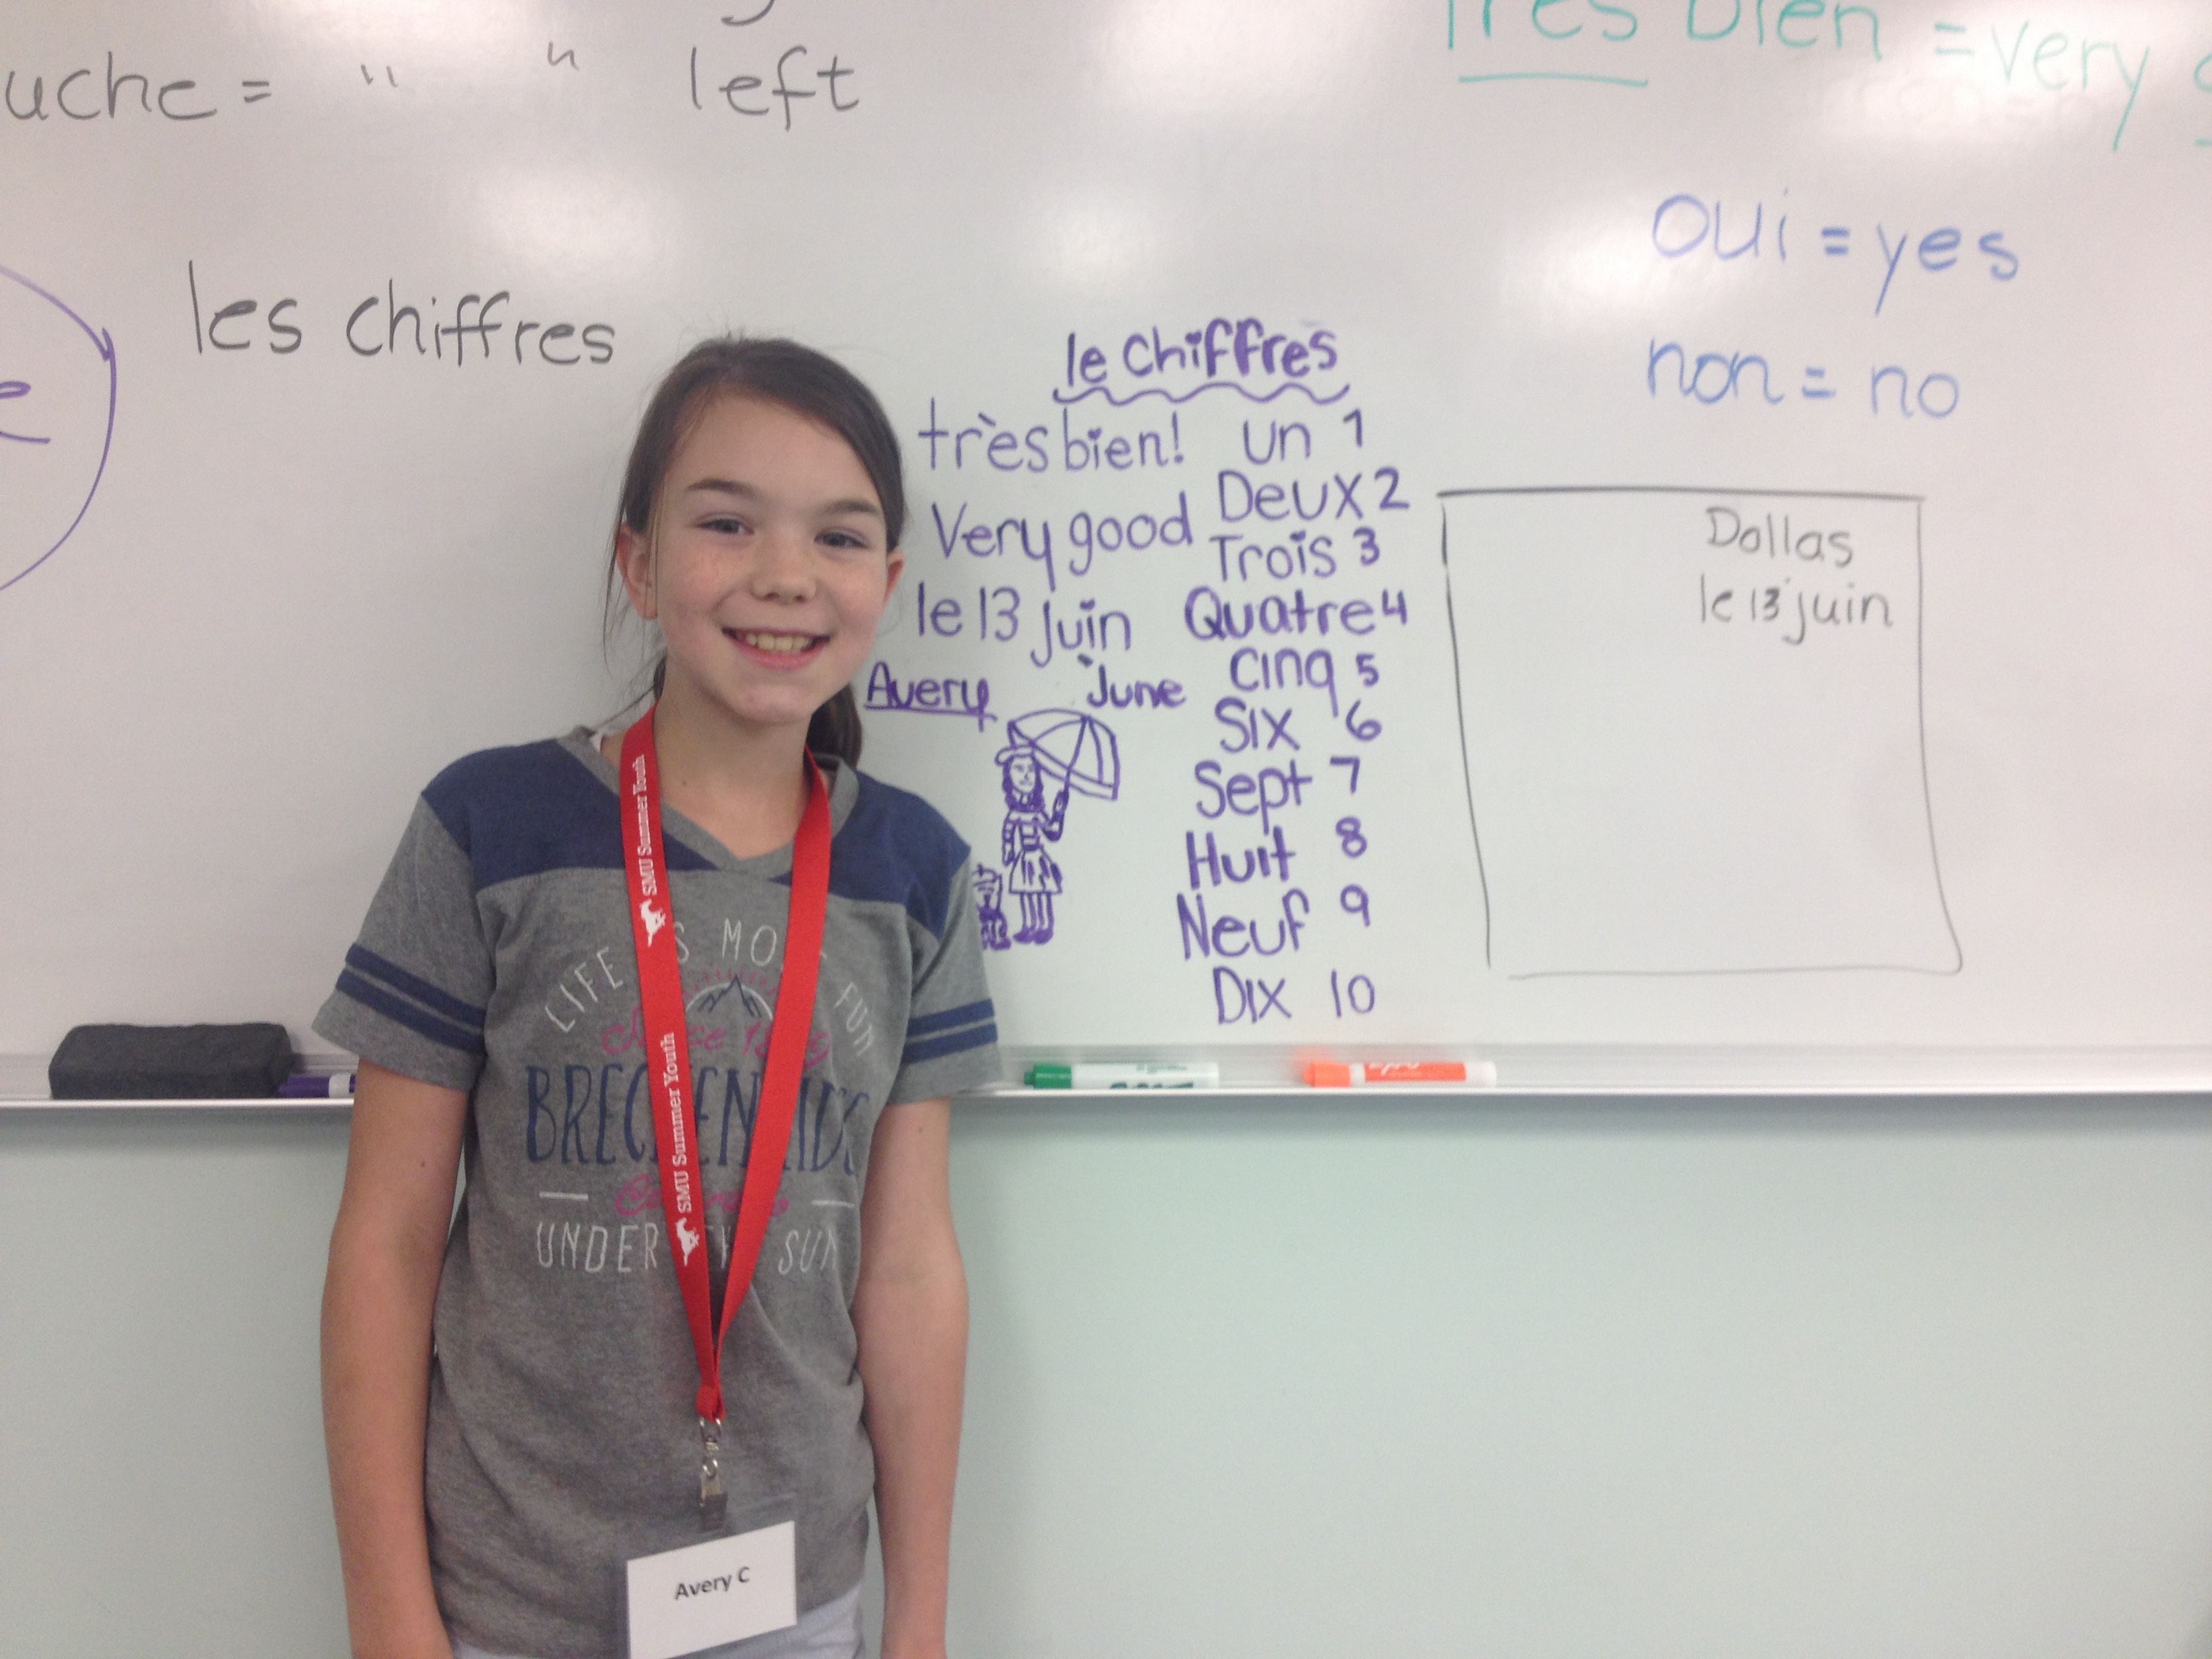 uche = " " left
Très bien = very
oui = yes
non = no
les chiffres
le chiffres
très bien! un 1
Very good Deux 2
Trois 3
le 13 juin Quatre 4
Avery June cinq 5
Six 6
Sept 7
Huit 8
Neuf 9
Dix 10
Dallas
le 13 juin
SMU Summer Youth
SMU Summer Youth
LIFE IS MO FUN
BRECKEN
UNDER SUN
Avery C